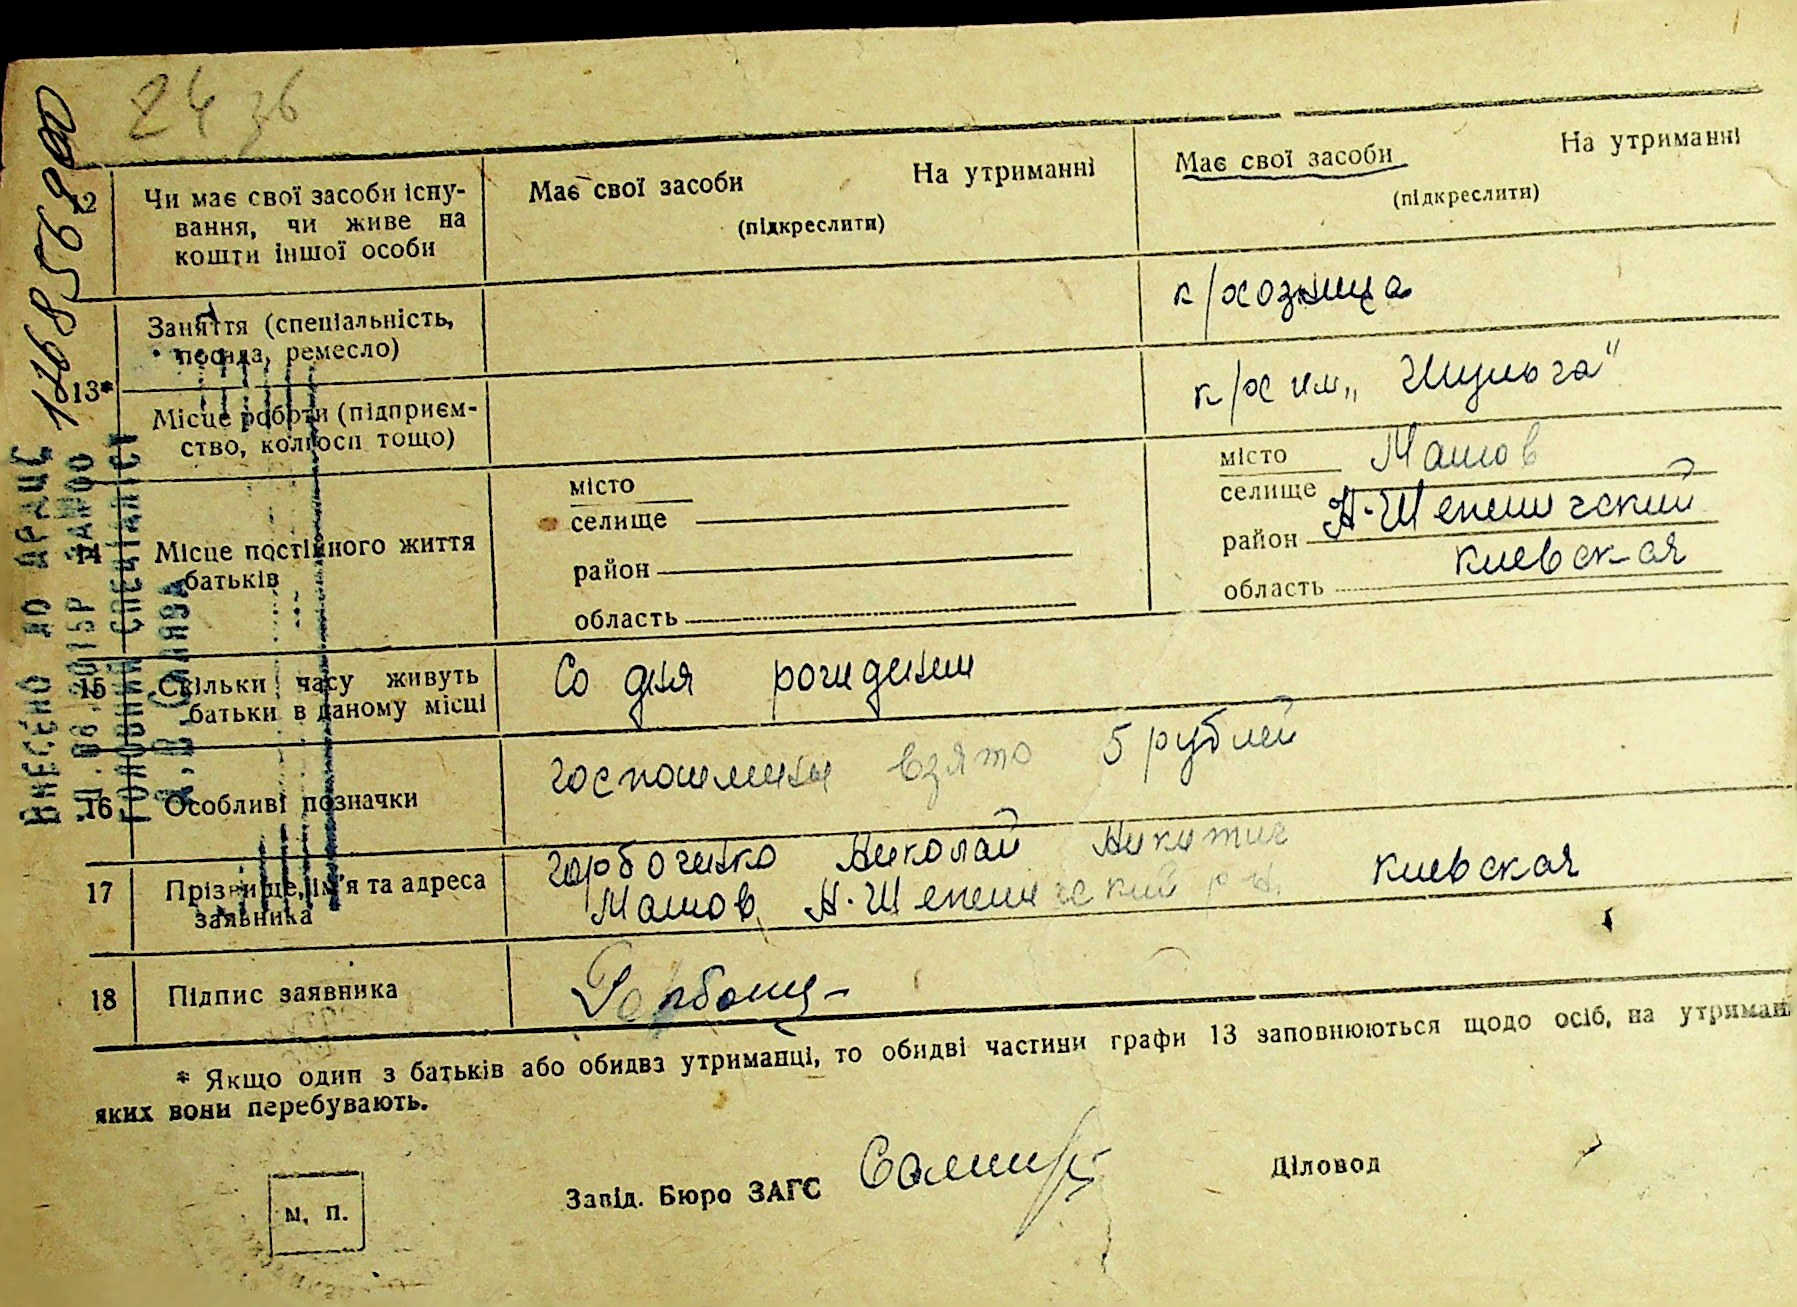 24 зб
12 Чи має свої засоби існу- Має свої засоби На утриманні Має свої засоби На утриманні
вання, чи живе на (підкреслити) (підкреслити)
кошти іншої особи
13* Заняття (спеціальність, к/хозница
посада, ремесло)
Місце роботи (підприєм- к/х им „
ство, колгосп тощо)
14 Місце постійного життя
батьків
місто
селище
район
область
місто Машов
селище
район Н-Шепеличский
область Киевская
15 Скільки часу живуть Со дня рождения
батьки в даному місці
16 Особливі позначки госпошлины взято 5 рублей
17 Прізвище, ім'я та адреса Горбоченко Николай Никитич
заявника Машов Н-Шепеличский р-н. Киевская
18 Підпис заявника
* Якщо один з батьків або обидва утриманці, то обидві частини графи 13 заповнюються щодо осіб, на утриман
яких вони перебувають.
м. п. Завід. Бюро ЗАГС Діловод
ВНЕСЕНО ДО ДРАЦС
ГОЛОВНИЙ СПЕЦІАЛІСТ